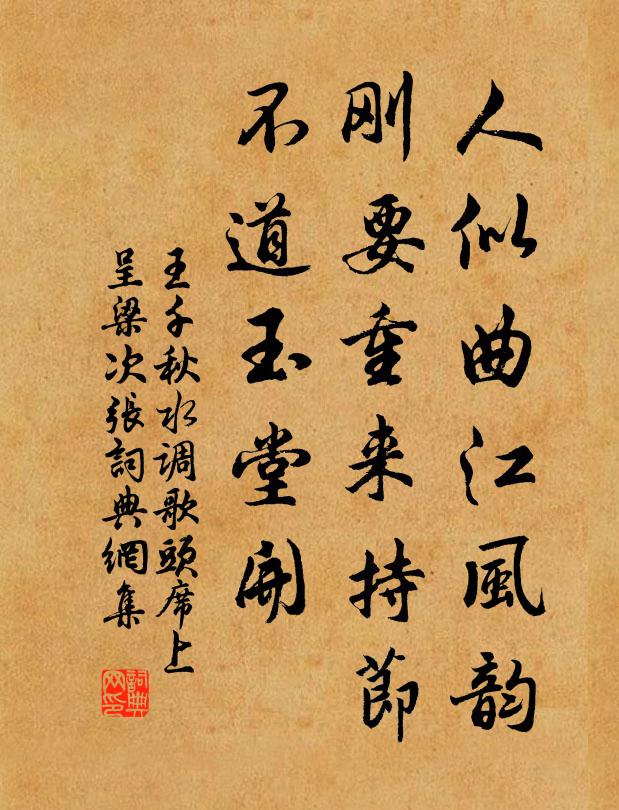 人似曲江風韵
刚要重来持節
不道玉堂開
王千秋水调歌頭席上
呈梁次張詞典網集
詞典网印